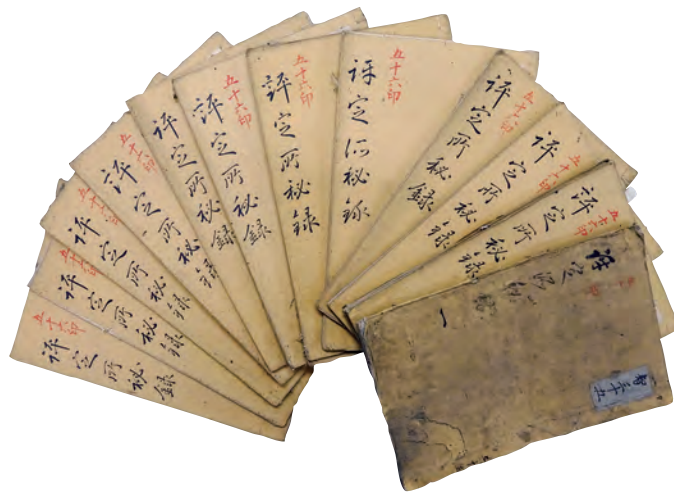 五十六印
評定所秘録
五十六印
評定所秘録
五十六印
評定所秘録
五十六印
評定所秘録
評定所秘録
五十六印
評定所秘録
五十六印
評定所秘録
五十六印
評定所秘録
五十六印
評定所秘録
五十六印
評定所秘録
五十六印
評定所秘録
評定所秘録
一